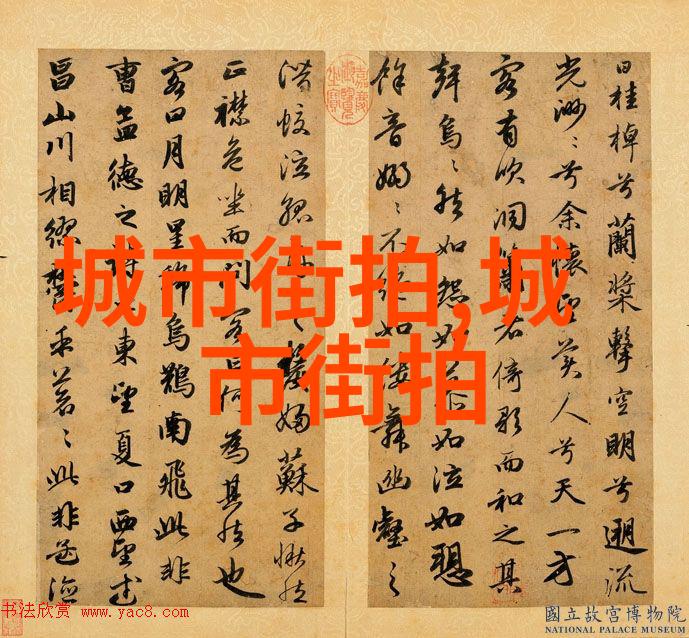 曰桂棹兮蘭槳擊空明兮遡流
光渺〻兮余懷望美人兮天一方
客有吹洞簫者倚歌而和之其
聲烏〻然如怨如慕如泣如愬
餘音嫋〻不絕如縷舞幽壑之
潛蛟泣孤舟之嫠婦蘇子愀然
正襟危坐而問客曰何為其然也
客曰月明星稀烏鵲南飛此非
曹孟德之詩乎東望夏口西望武
昌山川相繆鬱乎蒼〻此非孟德
城市街拍,城
市街拍
书法欣赏 www.yac8.com
國立故宮博物院
NATIONAL PALACE MUSEUM